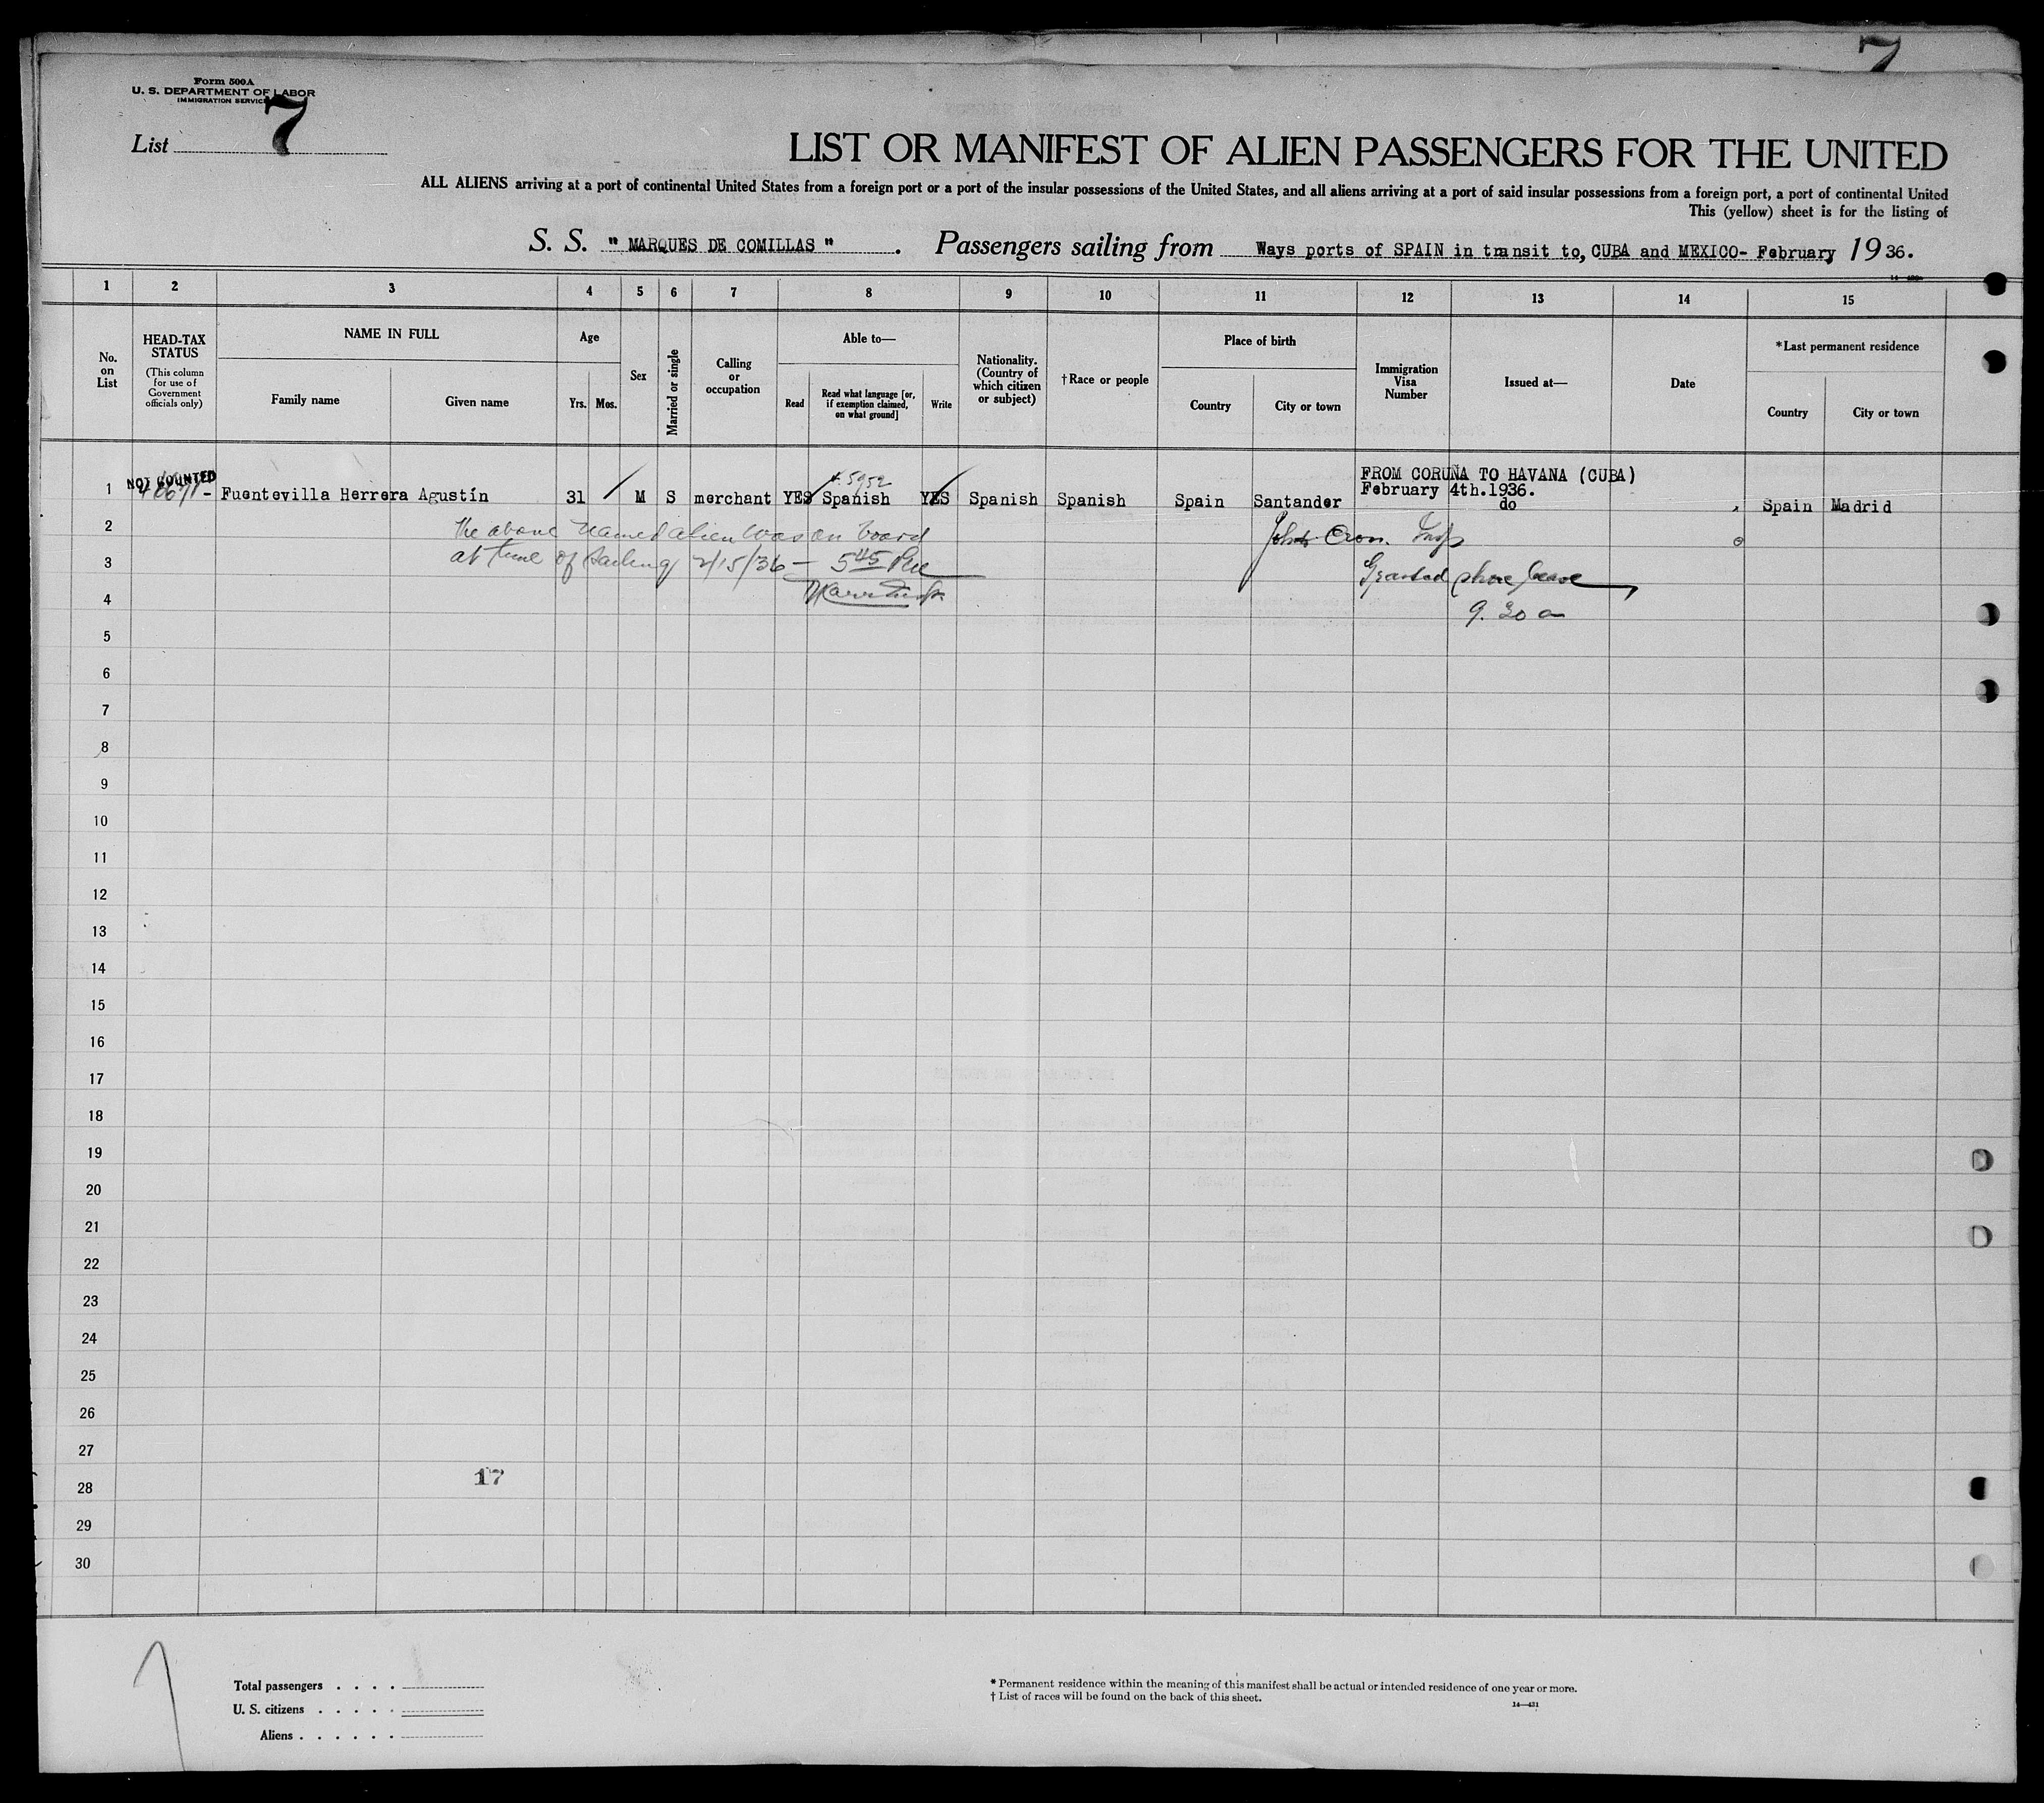 7
Form 500A
U. S. DEPARTMENT OF LABOR
IMMIGRATION SERVICE
List 7
LIST OR MANIFEST OF ALIEN PASSENGERS FOR THE UNITED
ALL ALIENS arriving at a port of continental United States from a foreign port or a port of the insular possessions of the United States, and all aliens arriving at a port of said insular possessions from a foreign port, a port of continental United
This (yellow) sheet is for the listing of
S. S. " MARQUES DE COMILLAS " . Passengers sailing from Ways ports of SPAIN in transit to, CUBA and MEXICO- February, 1936.
1 2 3 4 5 6 7 8 9 10 11 12 13 14 15
No. on List
HEAD-TAX STATUS (This column for use of Government officials only)
NAME IN FULL
Family name Given name
Age
Yrs. Mos.
Sex
Married or single
Calling or occupation
Able to—
Read
Read what language [or, if exemption claimed, on what ground]
Write
Nationality. (Country of which citizen or subject)
†Race or people
Place of birth
Country City or town
Immigration Visa Number
Issued at—
Date
*Last permanent residence
Country City or town
NOT COUNTED
5952
FROM CORUÑA TO HAVANA (CUBA)
February 4th.1936.
1 Fuentevilla Herrera Agustín 31 M S merchant YES Spanish YES Spanish Spanish Spain Santander do Spain Madrid
2 The above named alien was on board
3 at time of sailing 2/15/36 — 5 45 PM
Granted shore leave
4
9.30 a
5
6
7
8
9
10
11
12
13
14
15
16
17
18
19
20
21
22
23
24
25
26
27
17
28
29
30
Total passengers . . . .
U. S. citizens . . . . .
Aliens . . . . . .
* Permanent residence within the meaning of this manifest shall be actual or intended residence of one year or more.
† List of races will be found on the back of this sheet.
14—431